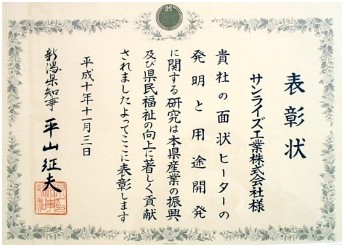 表彰状
サンライズ工業株式会社様
貴社の面状ヒーターの
発明と用途開発
に関する研究は本県産業の振興
及び県民福祉の向上に著しく貢献
されましたよってここに表彰します
平成十年十一月三日
新潟県知事 平山征夫